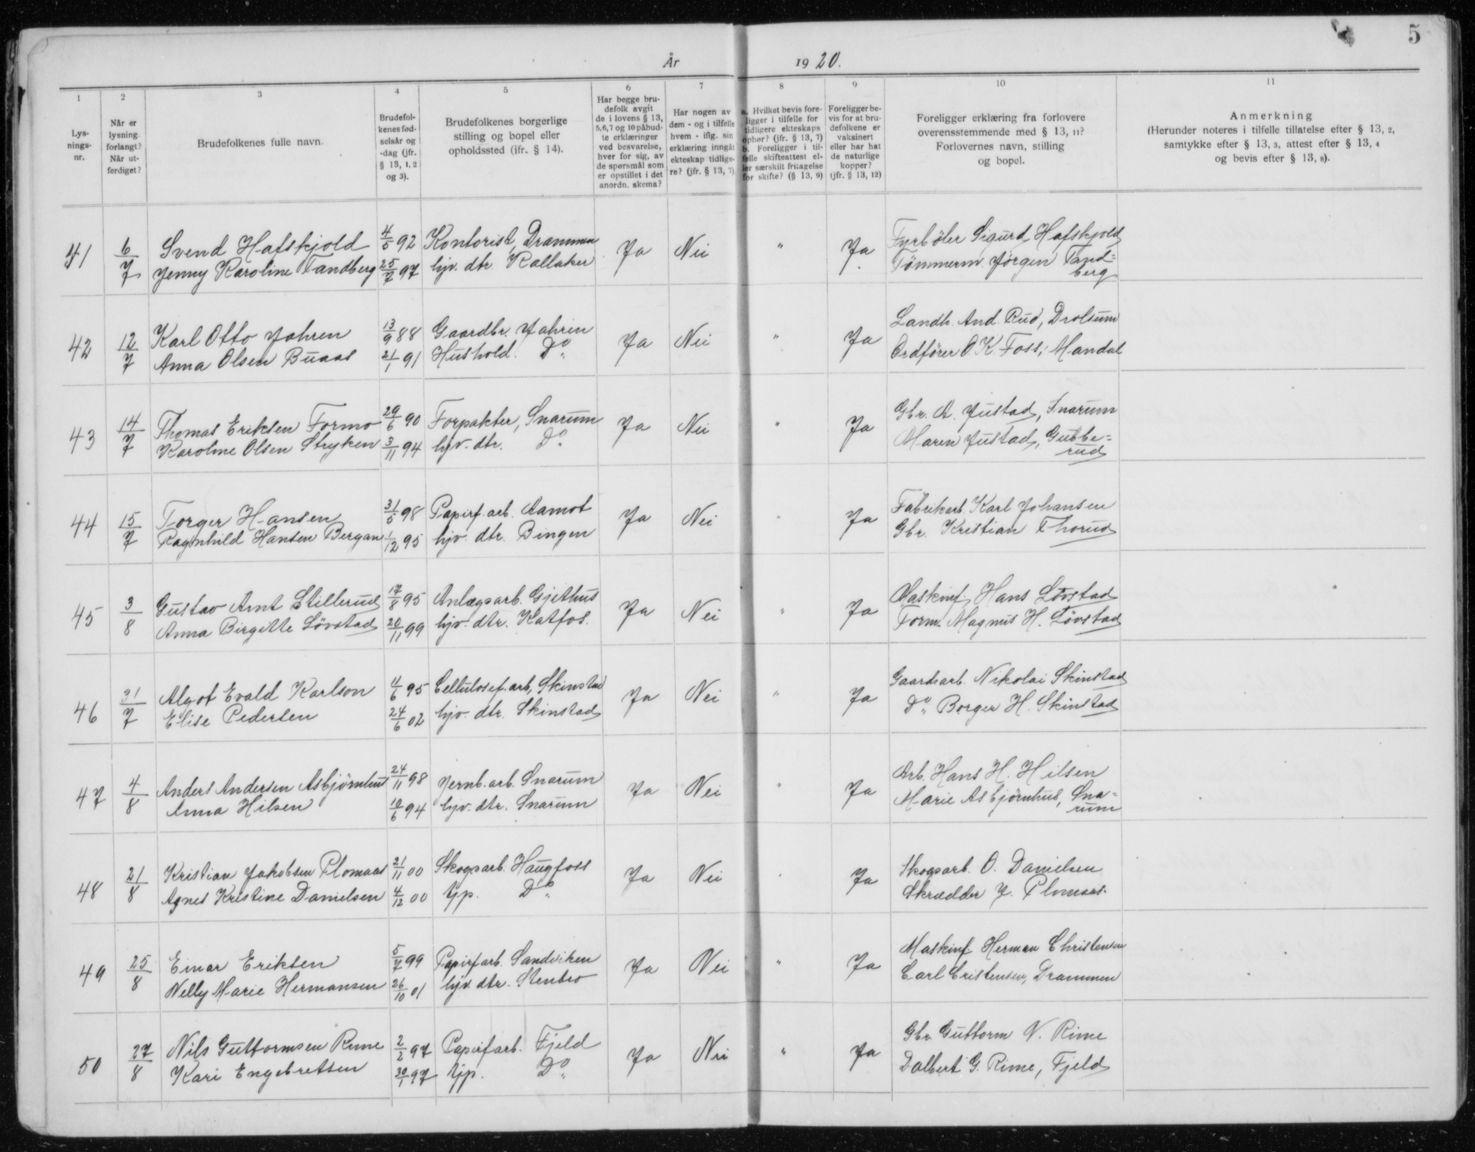 5
År 1920.
1 2 3 4 5 6 7 8 9 10 11
Lysnings-nr.
Når er lysning forlangt? Når utferdiget?
Brudefolkenes fulle navn.
Brudefolkenes fødselsår og -dag (jfr. § 13, 1, 2 og 3).
Brudefolkenes borgerlige stilling og bopel eller opholdssted (ifr. § 14).
Har begge brudefolk avgit de i lovens § 13, 5, 6, 7 og 10 påbudte erklæringer ved besvarelse, hver for sig, av de spørsmål som er opstillet i det anordn. skema?
Har nogen av dem - og i tilfelle hvem - iflg. sin erklæring inngått ekteskap tidligere? (jfr. § 13, 7)
a. Hvilket bevis foreligger i tilfelle for tidligere ekteskaps ophør? (ifr. § 13, 7)
b. Foreligger i tilfelle skifteattest eller særskilt fritagelse for skifte? (§ 13, 9)
Foreligger bevis for at brudefolkene er vaksinert eller har hat de naturlige kopper? (jfr. § 13, 12)
Foreligger erklæring fra forlovere overensstemmende med § 13, 11? Forlovernes navn, stilling og bopel.
Anmerkning (Herunder noteres i tilfelle tillatelse efter § 13, 2, samtykke efter § 13, 3, attest efter § 13, 4 og bevis efter § 13, 8).
41 6/7 Svend Hafskjold 4/5 92 Kontorist, Drammen Ja Nei " Ja Fyrbøter Sigurd Hafskjold
Jenny Karoline Tandberg 25/7 97 hjv. dtr Kallaker Tømmerm Jørgen Tandberg
42 12/7 Karl Otto Jahren 13/9 88 Gaardbr. Jahren Ja Nei " Ja Landh. And. Rud, Drolsum
Anna Olsen Buaas 21/1 91 Hushold. Do. Ordfører O. K. Foss, Mandal
43 14/7 Thomas Eriksen Formo 29/6 90 Forpakter, Snarum Ja Nei " Ja Gbr. A. Justad, Snarum
Karoline Olsen Stryken 3/11 94 hjv. dtr. Do. Maren Justad, Gubberud
44 15/7 Torger Hansen 31/5 98 Papirf arb. Aamot Ja Nei " Ja Fabrikarb Karl Johansen
Ragnhild Hansen Bergan 1/12 95 hjv. dtr. Bingen Gbr. Kristian Thorud
45 3/8 Gustav Amt Stillerud 17/8 95 Anlægsarb. Gjethus Ja Nei " Ja Maskinf Hans Løvstad
Anna Birgitte Løvstad 20/11 99 hjv. dtr. Katfos. Form. Magnus H. Løvstad
46 21/7 Algot Evald Karlson 4/6 95 Cellulosef.arb, Skinstad Ja Nei " Ja Gaardsarb Nikolai Skinstad
Elise Pedersen 24/6 02 hjv. dtr. Skinstad Do. Borger H. Skinstad
47 4/8 Anders Andersen Asbjørnhus 24/11 98 Jernb.arb. Snarum Ja Nei " Ja Arb. Hans H. Hilsen
Anna Hilsen 10/6 94 hjv. dtr. Snarum Marie Asbjørnhus, Snarum
48 21/8 Kristian Jakobsen Plomaas 21/11 00 Skogsarb. Haugfoss Ja Nei " Ja Skogsarb. O. Danielsen
Agnes Kristine Danielsen 4/12 00 tjp. Do. Skrædder J. Plomaas.
49 25/8 Einar Eriksen 5/7 99 Papirfarb Sandviken Ja Nei " Ja Maskinf Herman Christensen
Nelly Marie Hermansen 26/10 01 hjv. dtr. Stenbro Carl Cristensen, Drammen
50 27/8 Nils Guttormsen Rime 2/2 97 Papirfarb. Fjeld Ja Nei " Ja Gbr Guttorm N. Rime
Kari Engebretsen 30/1 97 tjp. Do. Dalbert G. Rime, Fjeld